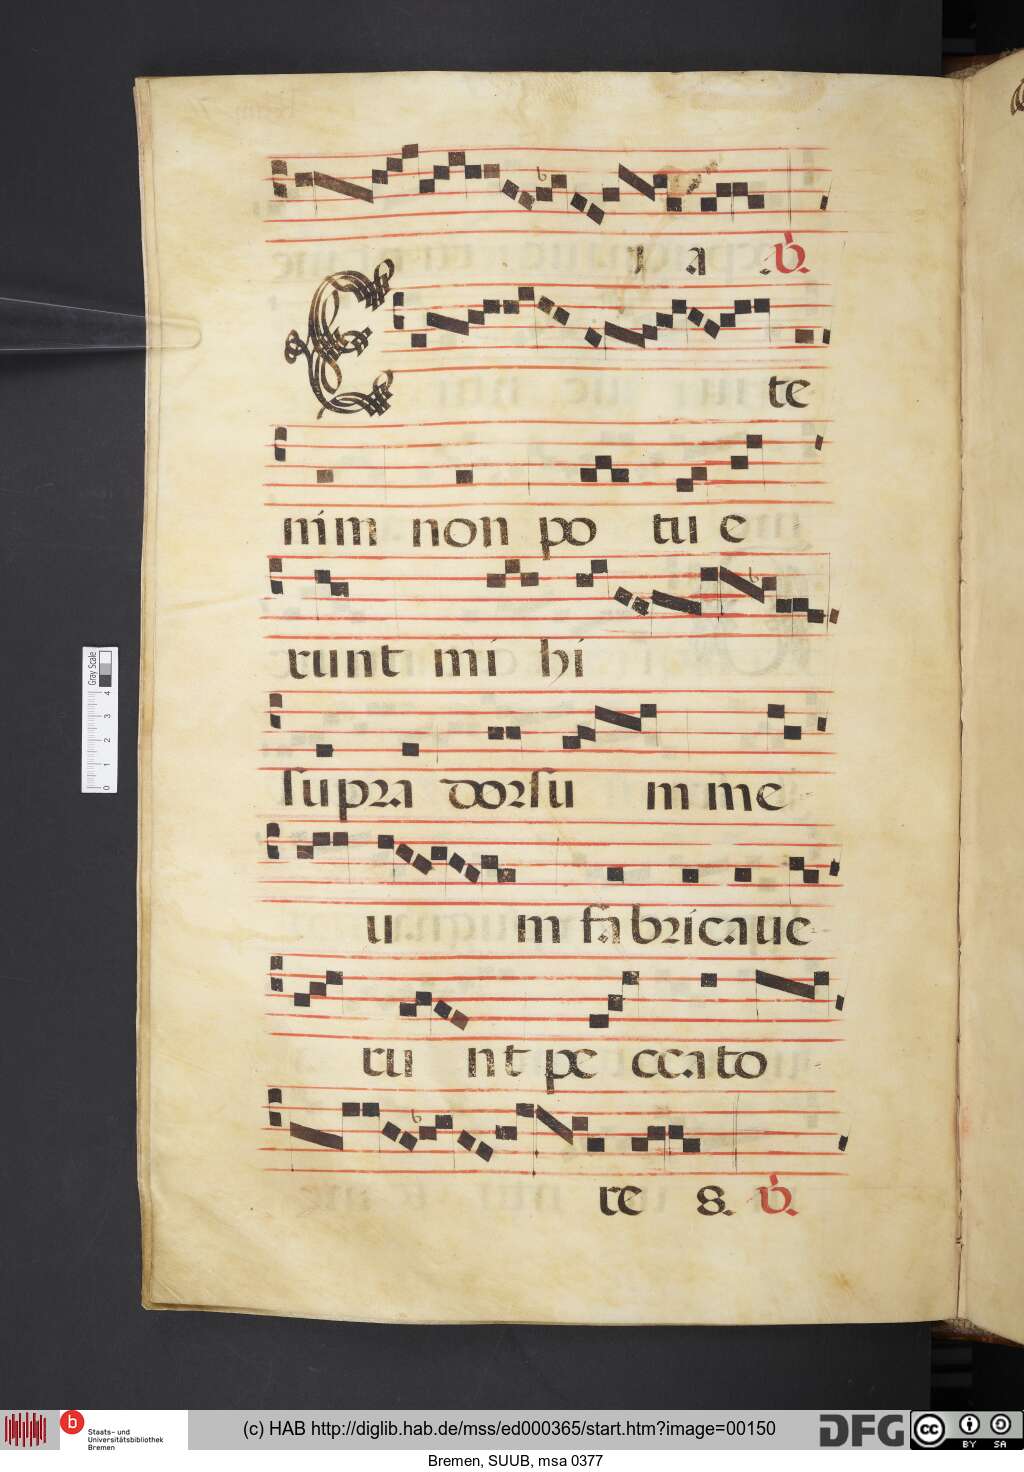 ı a .℣.
E te
nim non po tu e
runt mi hi
supra dorsu m me
u m fabricaue
ru nt pe ccato
re s. ℣.
Gray Scale
0 1 2 3 4
b Staats- und
Universitätsbibliothek
Bremen
(c) HAB http://diglib.hab.de/mss/ed000365/start.htm?image=00150
DFG
cc BY SA
Bremen, SUUB, msa 0377